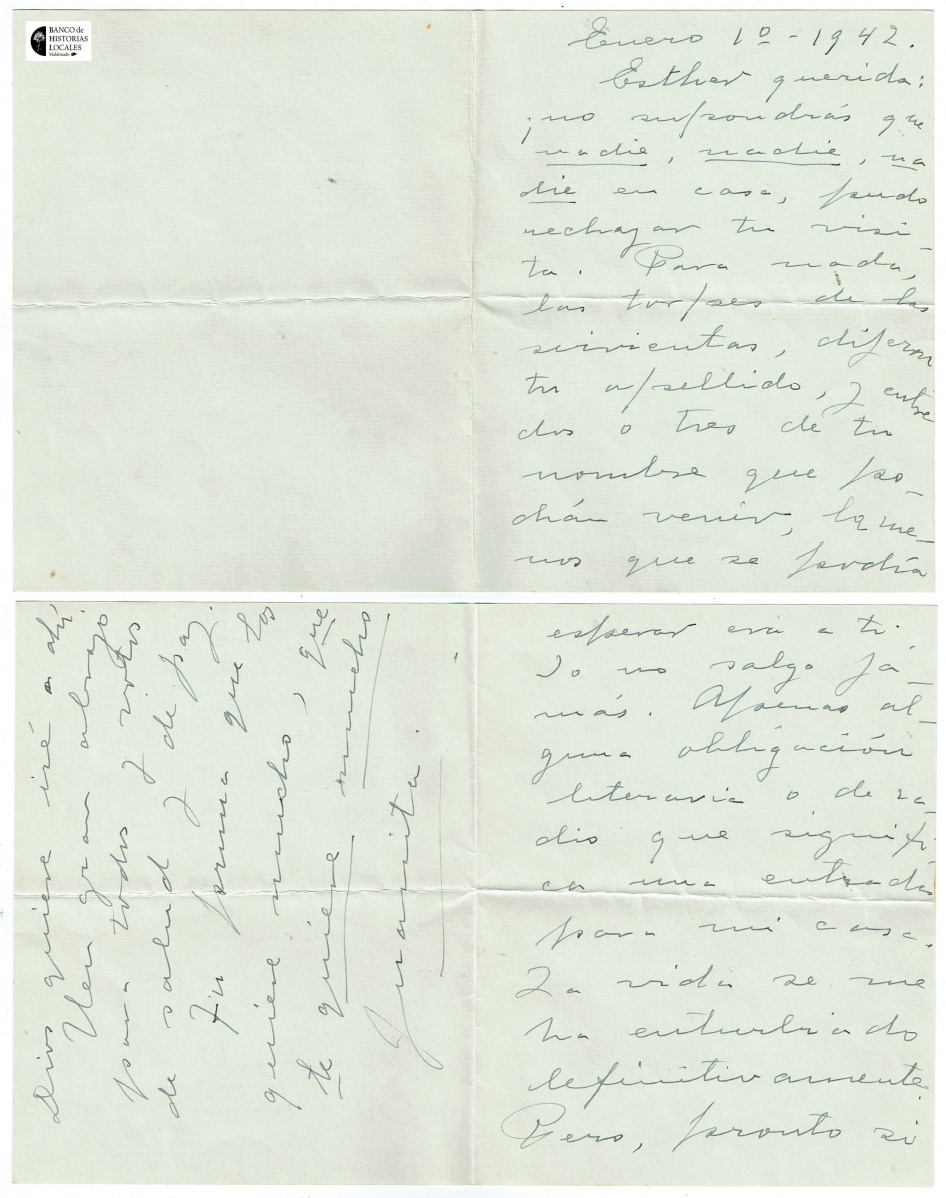 BANCO de
HISTORIAS
LOCALES
Maldonado
Enero 1º - 1942.
Esther querida:
¡no supondrás que
nadie, nadie, na
die en casa, pudo
rechazar tu visi-
ta. Para nada,
las torpes de las
sirvientas, dijeron
tu apellido, y entre
dos o tres de tu
nombre que po-
drían venir, la me-
nos que se podía
esperar era a ti.
Yo no salgo ja-
más. Apenas al-
guna obligación
literaria o de ra-
dio que signifi-
ca una entrada
para mi casa.
La vida se me
ha enturbiado
definitivamente.
Pero, pronto si
Dios quiere iré a ahí.
Un gran abrazo
para todos y votos
de salud y de paz.
Tu prima que los
quiere mucho, que
te quiere mucho
Juanita.